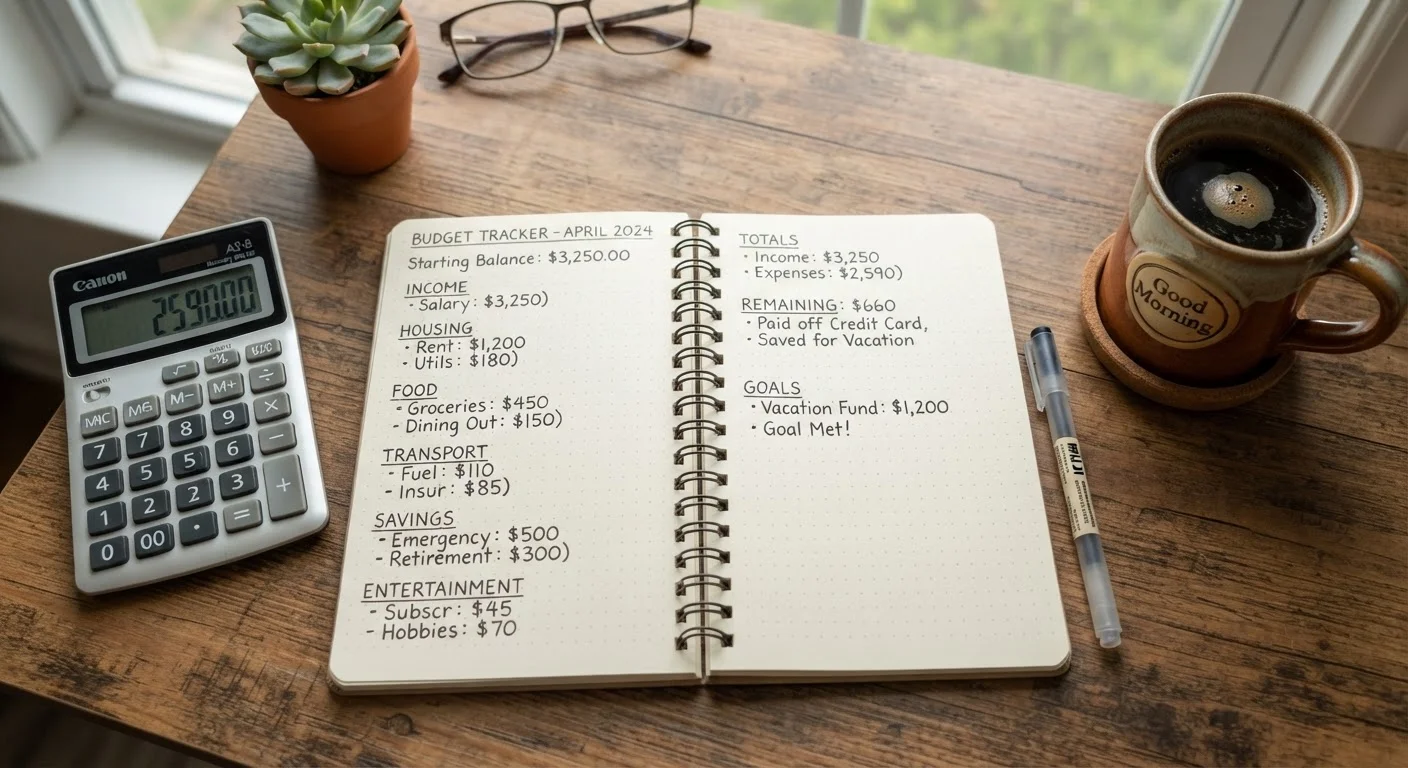 Canon
2590.00
√
÷
M-
M+
×
7
8
9
−
4
5
5
6
1
2
2
3
+
0
00
•
=
BUDGET TRACKER – APRIL 2024
Starting Balance: $3,250.00
INCOME
- Salary: $3,250)
HOUSING
- Rent: $1,200
- Utils: $180)
FOOD
- Groceries: $450
- Dining Out: $150)
TRANSPORT
- Fuel: $110
- Insur: $85)
SAVINGS
- Emergency: $500
- Retirement: $300)
ENTERTAINMENT
- Subscr: $45
- Hobbies: $70
TOTALS
• Income: $3,250
• Expenses: $2,590)
REMAINING: $660
• Paid off Credit Card,
• Saved for Vacation
GOALS
• Vacation Fund: $1,200
• Goal Met!
Good
Morning